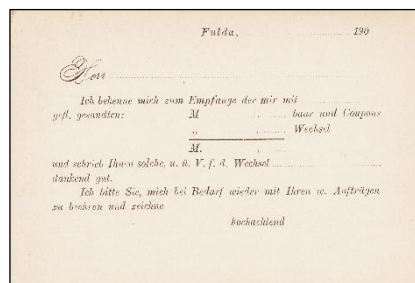 Fulda, 190
Herr
Ich bekenne mich zum Empfange der mir mit
gefl. gesandten: M baar und Coupons
„ „ Wechsel
M.
und schrieb Ihnen solche, u. ü. V. f. d. Wechsel
dankend gut.
Ich bitte Sie, mich bei Bedarf wieder mit Ihren w. Aufträgen
zu beehren und zeichne
hochachtend